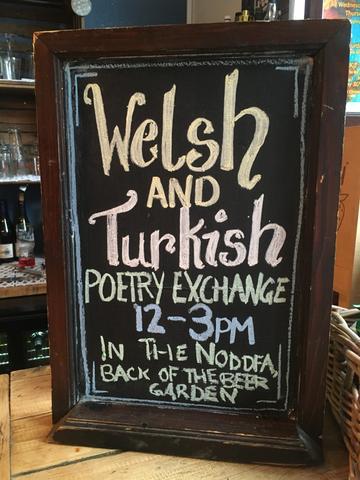 Welsh
AND
Turkish
POETRY EXCHANGE
12-3PM
IN THE NODDFA,
BACK OF THE BEER
GARDEN